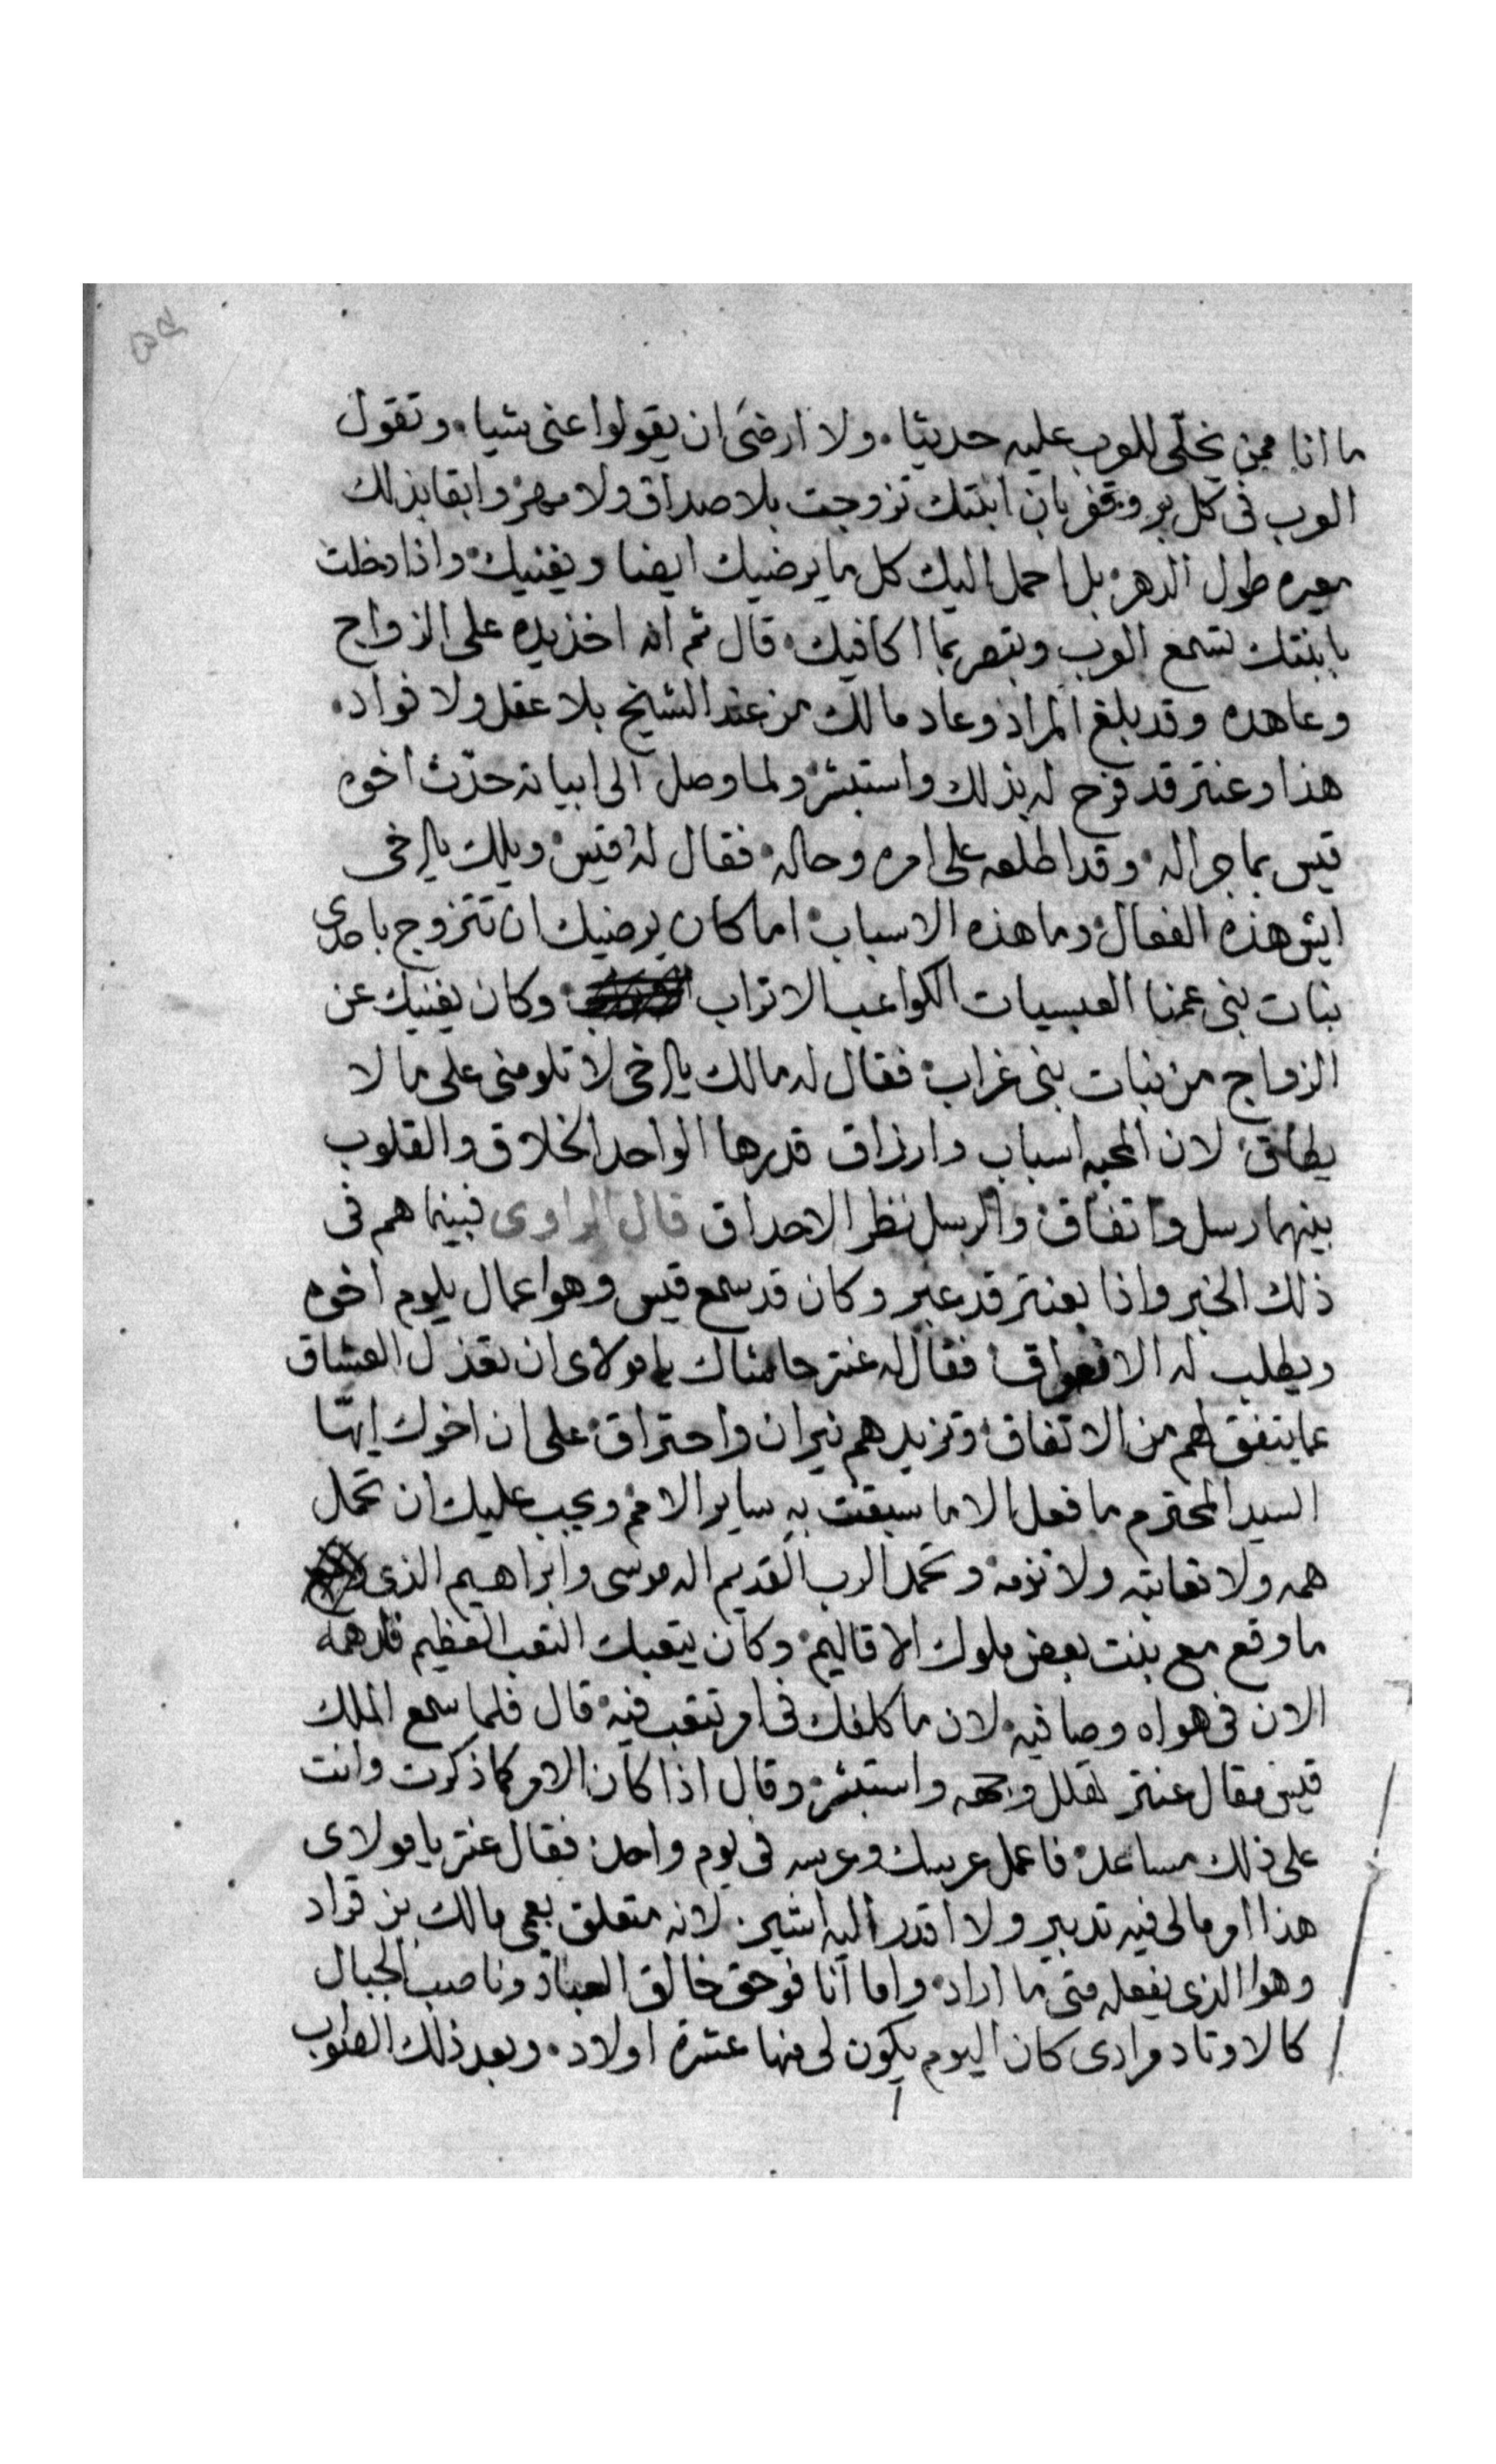 ما انا ممن يخلى للعرب عليه حديثا ولا ارضى ان يقولوا عنى شيا وتقول
العرب فى كل بر وقفر بان ابنتك تزوجت بلا صداق ولا مهر وابقا بذلك
معيره طول الدهر بل احمل اليك كل ما يرضيك ايضا ويغنيك واذا دخلت
بابنتك تسمع العرب وتبصر بما اكافيك قال ثم انه اخذ يده على الزواج
وعاهده وقد بلغ المراد وعاد مالك من عند الشيخ بلا عقل ولا فواد
هذا وعنتر قد فرح له بذلك واستبشر ولما وصل الى ابياته حدّث اخوه
قيس بما جرا له وقد اطلعه على امره وحاله فقال له قيس ويلك يا اخى
ايش هذه الفعال وما هذه الاسباب اما كان يرضيك ان تتزوج باحدى
بنات بنى عمنا العبسيات الكواعب الاتراب وكان يغنيك عن
الزواج من بنات بنى غراب فقال له مالك يا اخى لا تلومنى على ما لا
يطاق لان المحبه اسباب وارزاق قدرها الواحد الخلاق والقلوب
بينهما رسل واتفاق والرسل نظر الاحداق قال الراوى فبينما هم فى
ذلك الخبر واذا بعنتر قد عبر وكان قد سمع قيس وهو اعمال يلوم اخوه
ويطلب له فقال له عنتر حاشاك يا مولاى ان تعذل العشاق
عما يتفق لهم من الاتفاق وتزيدهم نيران واحتراق على ان اخوك ايهّا
السيد المحترم ما فعل الا ما سبقت به ساير الامم ويجب عليك ان تحمل
همه ولا تعاتبه ولا تزمه وتحمد الرب القديم اله موسى وابراهيم الذى
ما وقع مع بنت بعض ملوك الاقاليم وكان يتعبك التعب العظيم
الان فى هواه وصافيه لان ما كلفك فى امر تتعب فيه قال فلما سمع الملك
قيس مقال عنتر تهلل وجهه واستبشر وقال اذا كان الامر كما ذكرت وانت
على ذلك مساعد فاعمل عرسك وعرسه فى يوم واحد فقال عنتر يا مولاى
هذا امر مالى فيه تدبير ولا اقدر اليه اشير لانه متعلق بعمى مالك بن قراد
وهو الذى يفعله متى ما اراد واما انا فوحق خالق العباد وناصب الجبال
كالاوتاد مرادى كان اليوم يكون لى منها عشرة اولاد وبعد ذلك